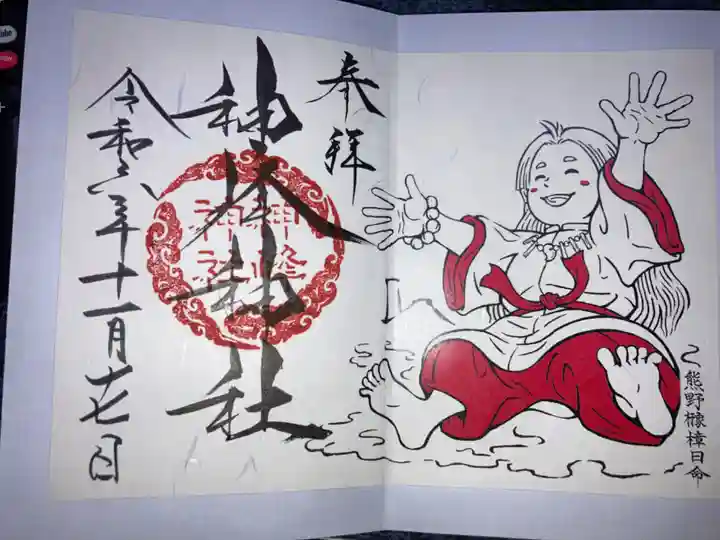 奉拝
神峯神社
神峰
神社
令和六年十一月十七日
熊野櫲樟日命